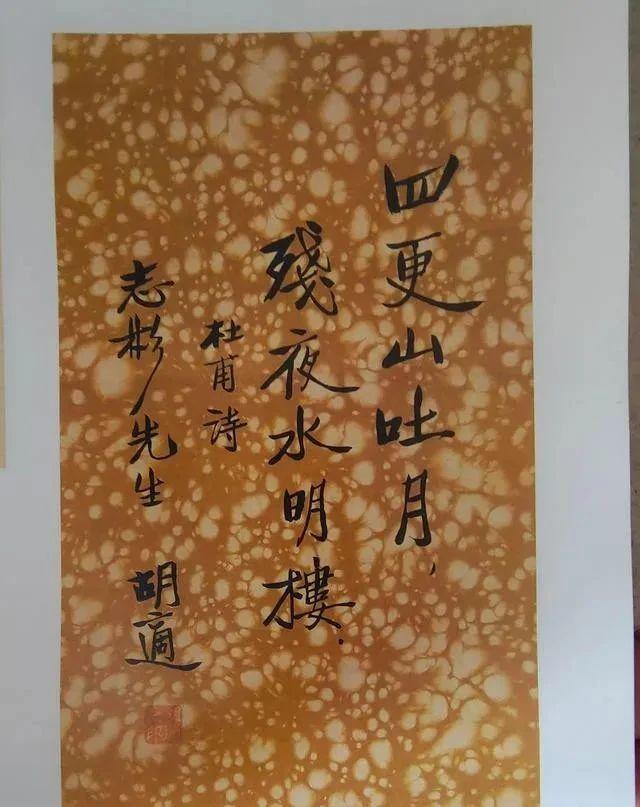 四更山吐月，
殘夜水明樓．
杜甫詩
志彬先生 胡適